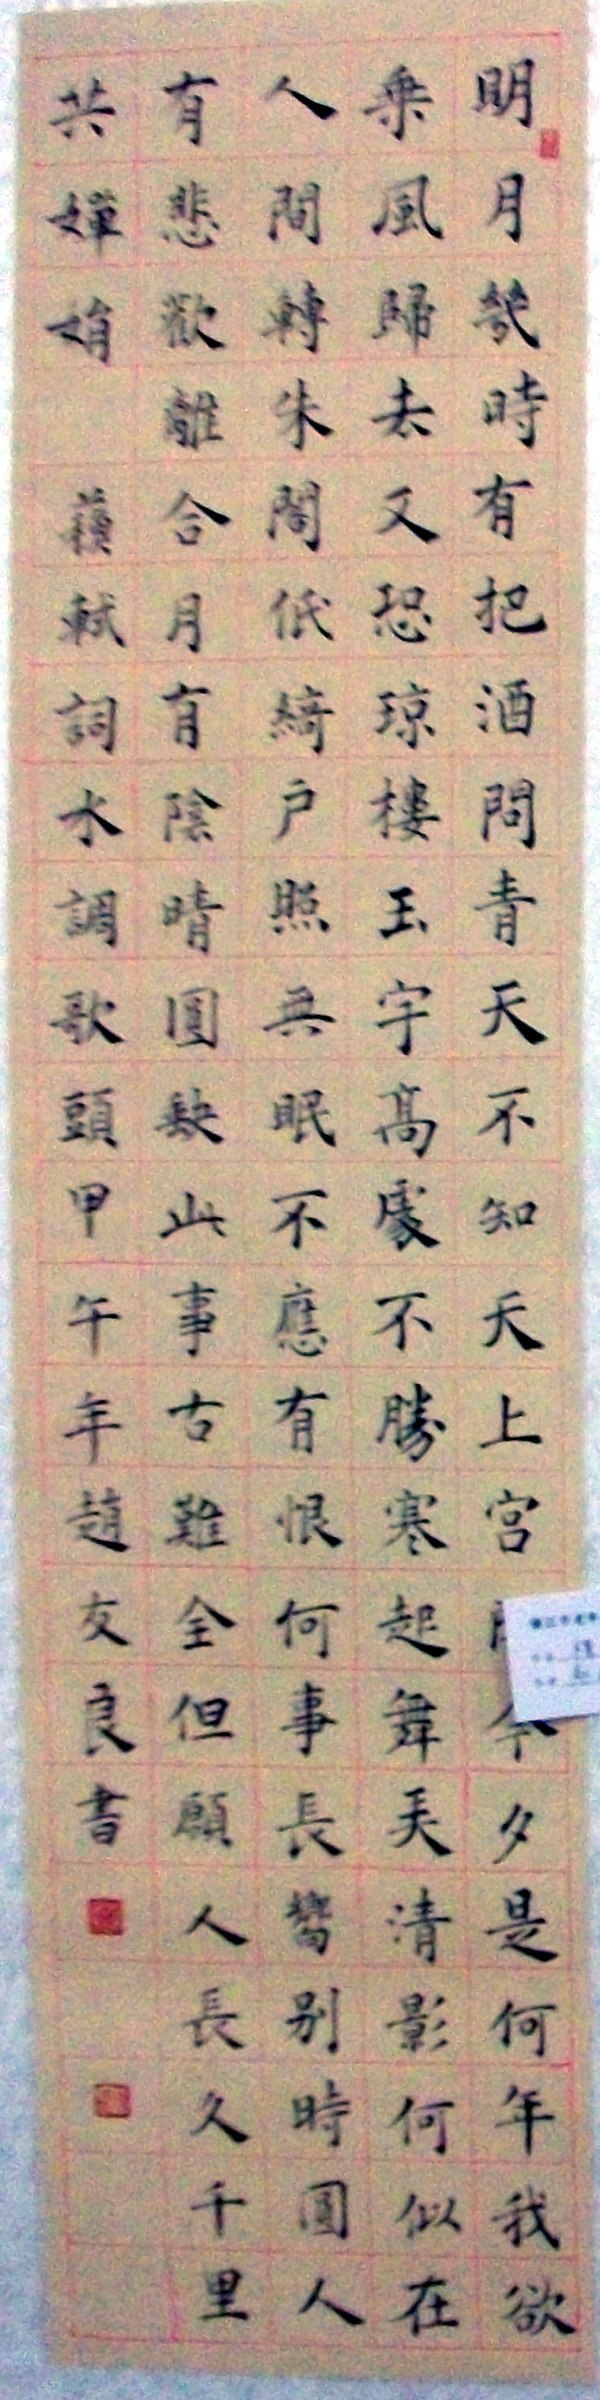 明月幾時有把酒問青天不知天上宫今夕是何年我欲
乘風歸去又恐琼樓玉宇高處不勝寒起舞弄清影何似在
人間轉朱閣低綺户照無眠不應有恨何事長嚮别時圓人
有悲歡離合月有陰晴圓缺此事古難全但願人長久千里
共嬋娟 蘇軾詞水調歌頭甲午年趙友良書